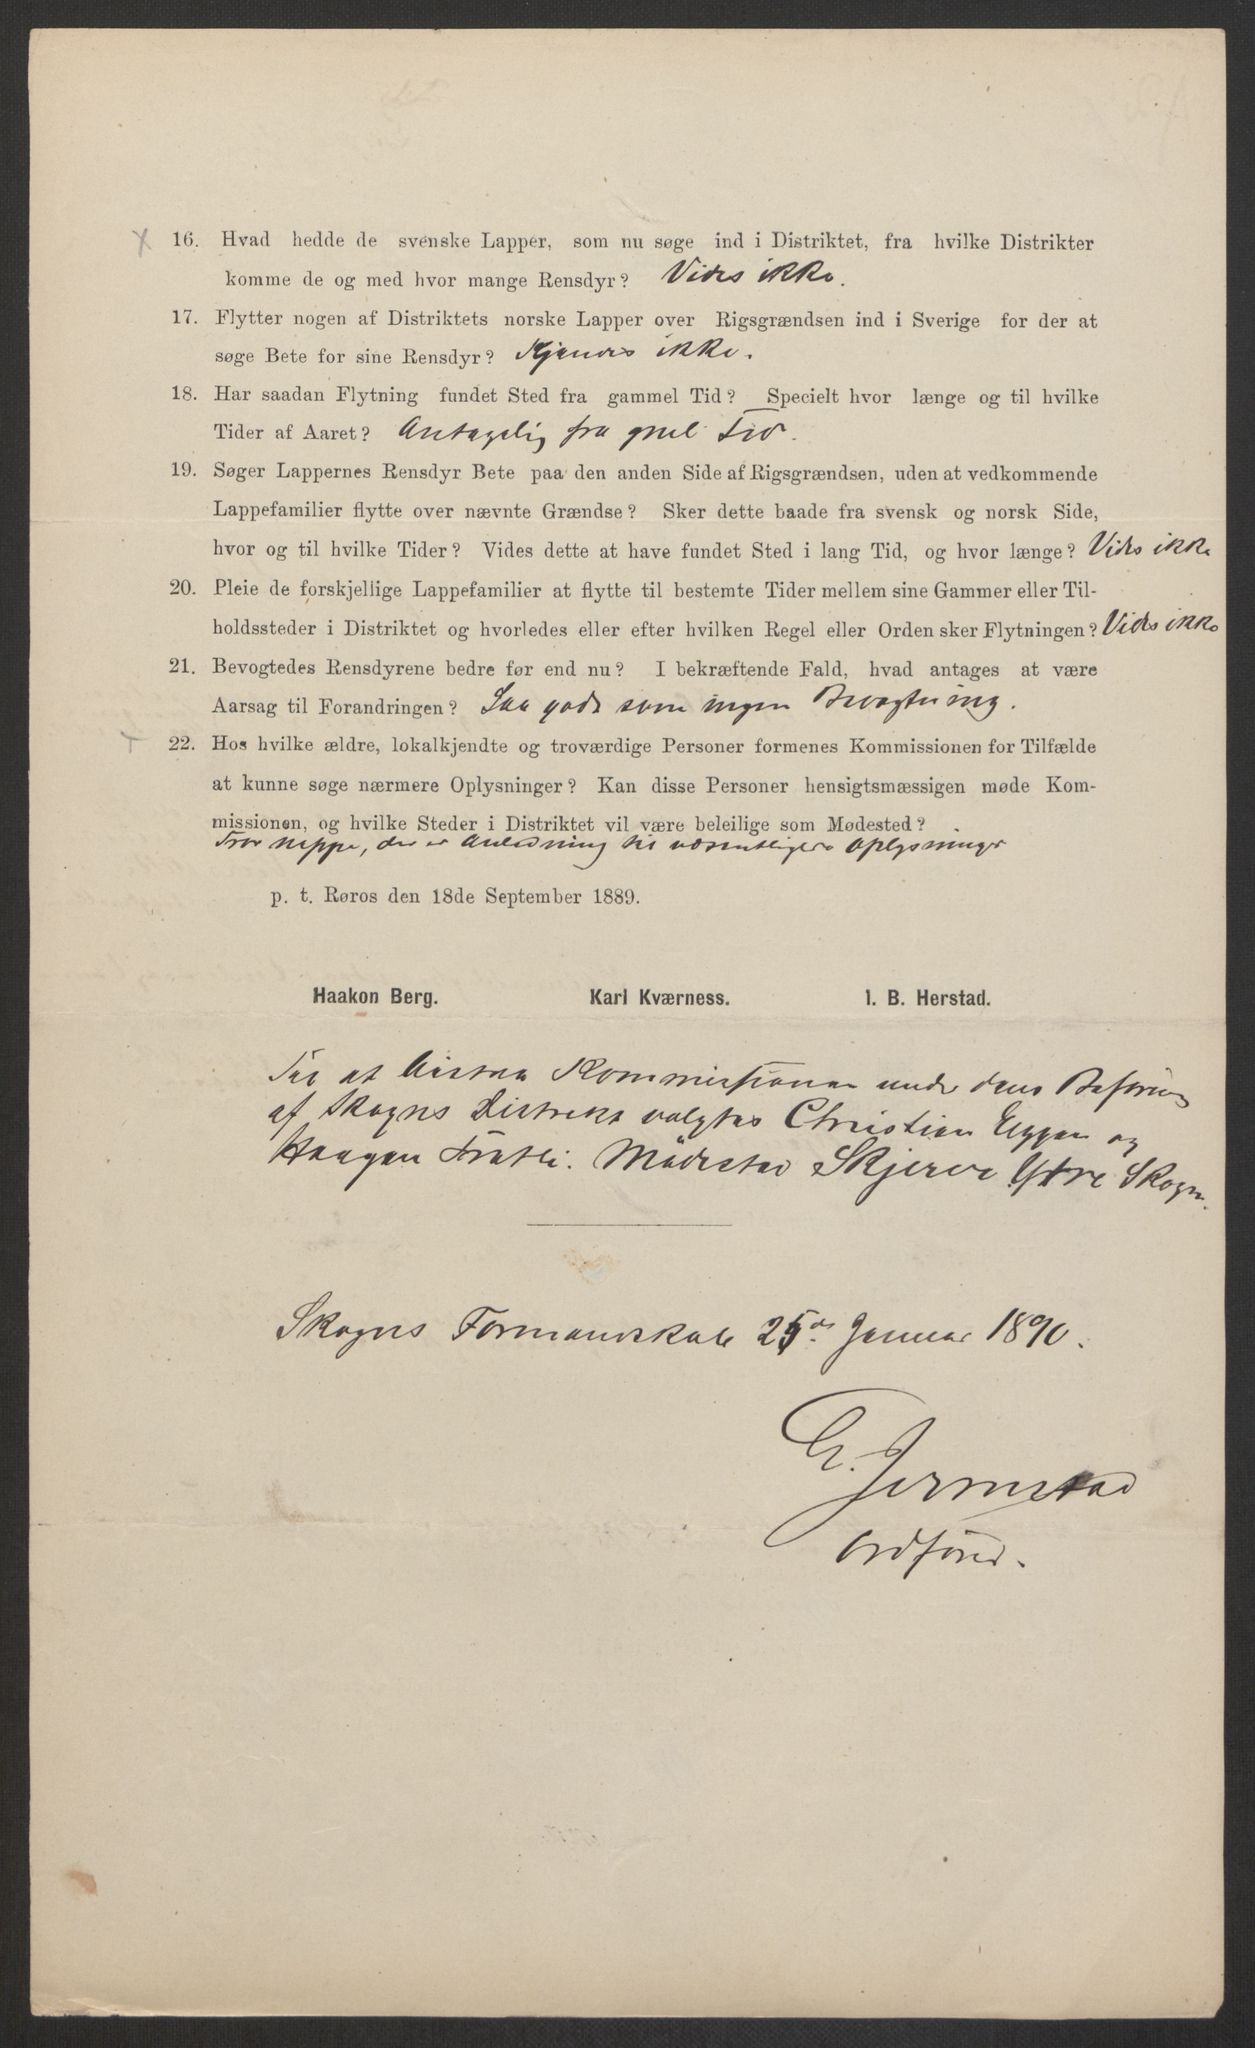 16. Hvad hedde de svenske Lapper, som nu søge ind i Distriktet, fra hvilke Distrikter
komme de og med hvor mange Rensdyr? Vides ikke.
17. Flytter nogen af Distriktets norske Lapper over Rigsgrændsen ind i Sverige for der at
søge Bete for sine Rensdyr? Kjendes ikke.
18. Har saadan Flytning fundet Sted fra gammel Tid? Specielt hvor længe og til hvilke
Tider af Aaret? Antagelig fra gml Tid.
19. Søger Lappernes Rensdyr Bete paa den anden Side af Rigsgrændsen, uden at vedkommende
Lappefamilier flytte over nævnte Grændse? Sker dette baade fra svensk og norsk Side,
hvor og til hvilke Tider? Vides dette at have fundet Sted i lang Tid, og hvor længe? Vides ikke
20. Pleie de forskjellige Lappefamilier at flytte til bestemte Tider mellem sine Gammer eller Til-
holdssteder i Distriktet og hvorledes eller efter hvilken Regel eller Orden sker Flytningen? Vides ikke
21. Bevogtedes Rensdyrene bedre før end nu? I bekræftende Fald, hvad antages at være
Aarsag til Forandringen? Saa godt som ingen Bevogtning.
22. Hos hvilke ældre, lokalkjendte og troværdige Personer formenes Kommissionen for Tilfælde
at kunne søge nærmere Oplysninger? Kan disse Personer hensigtsmæssigen møde Kom-
missionen, og hvilke Steder i Distriktet vil være beleilige som Mødested?
Tror neppe, der er Anledning til væsentligere Oplysninger
p. t. Røros den 18de September 1889.
Haakon Berg. Karl Kværness. I. B. Herstad.
Til at bistaa Kommissionen under dens Befaring
af Skogns Distrikt valgtes Christian Eggen og
Haagen Tratli. Mødested Skjerve Ytre Skogn.
Skogns Formandskab 25de Januar 1890.
Jermstad
Ordfører.